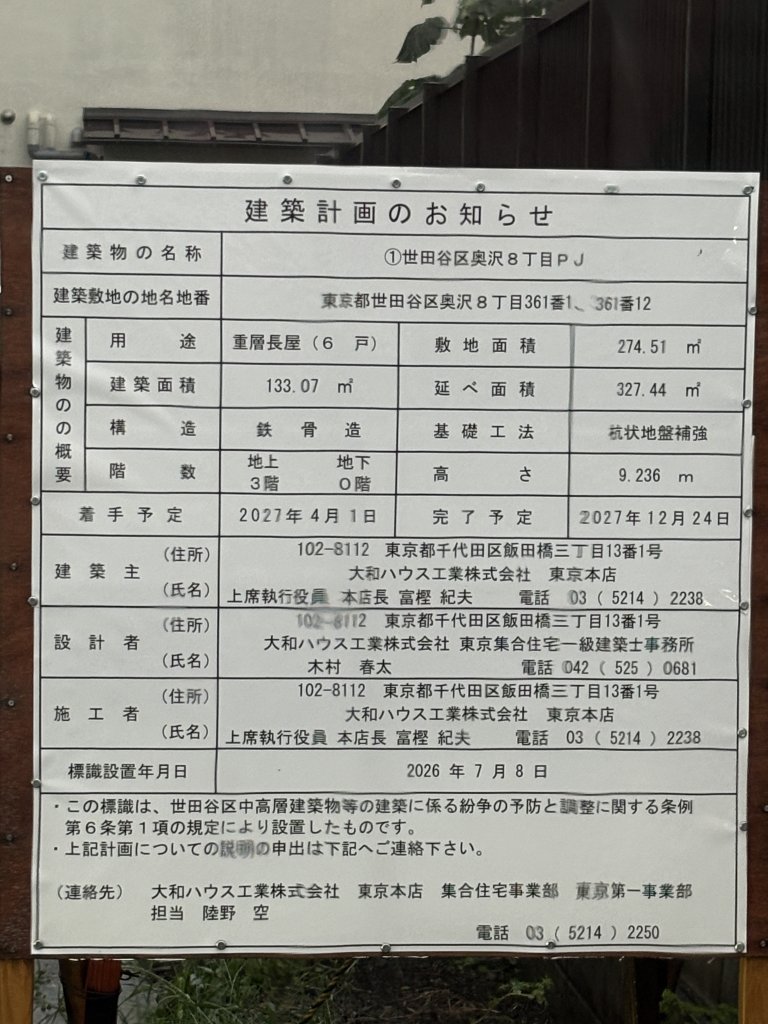 建築計画のお知らせ
建築物の名称 ①世田谷区奥沢8丁目PJ
建築敷地の地名地番 東京都世田谷区奥沢8丁目361番1、361番12
建築物のの概要
用途 重層長屋(6 戸) 敷地面積 274.51 ㎡
建築面積 133.07 ㎡ 延べ面積 327.44 ㎡
構造 鉄骨造 基礎工法 杭状地盤補強
階数 地上3階 地下0階 高さ 9.236 m
着手予定 2027年4月1日 完了予定 2027年12月24日
建築主 (住所) 102-8112 東京都千代田区飯田橋三丁目13番1号
大和ハウス工業株式会社 東京本店
(氏名) 上席執行役員 本店長 富樫 紀夫 電話 03(5214)2238
設計者 (住所) 102-8112 東京都千代田区飯田橋三丁目13番1号
大和ハウス工業株式会社 東京集合住宅一級建築士事務所
(氏名) 木村 春太 電話 042(525)0681
施工者 (住所) 102-8112 東京都千代田区飯田橋三丁目13番1号
大和ハウス工業株式会社 東京本店
(氏名) 上席執行役員 本店長 富樫 紀夫 電話 03(5214)2238
標識設置年月日 2026年7月8日
・この標識は、世田谷区中高層建築物等の建築に係る紛争の予防と調整に関する条例
第6条第1項の規定により設置したものです。
・上記計画についての説明の申出は下記へご連絡下さい。
(連絡先) 大和ハウス工業株式会社 東京本店 集合住宅事業部 東京第一事業部
担当 陸野 空
電話 03(5214)2250